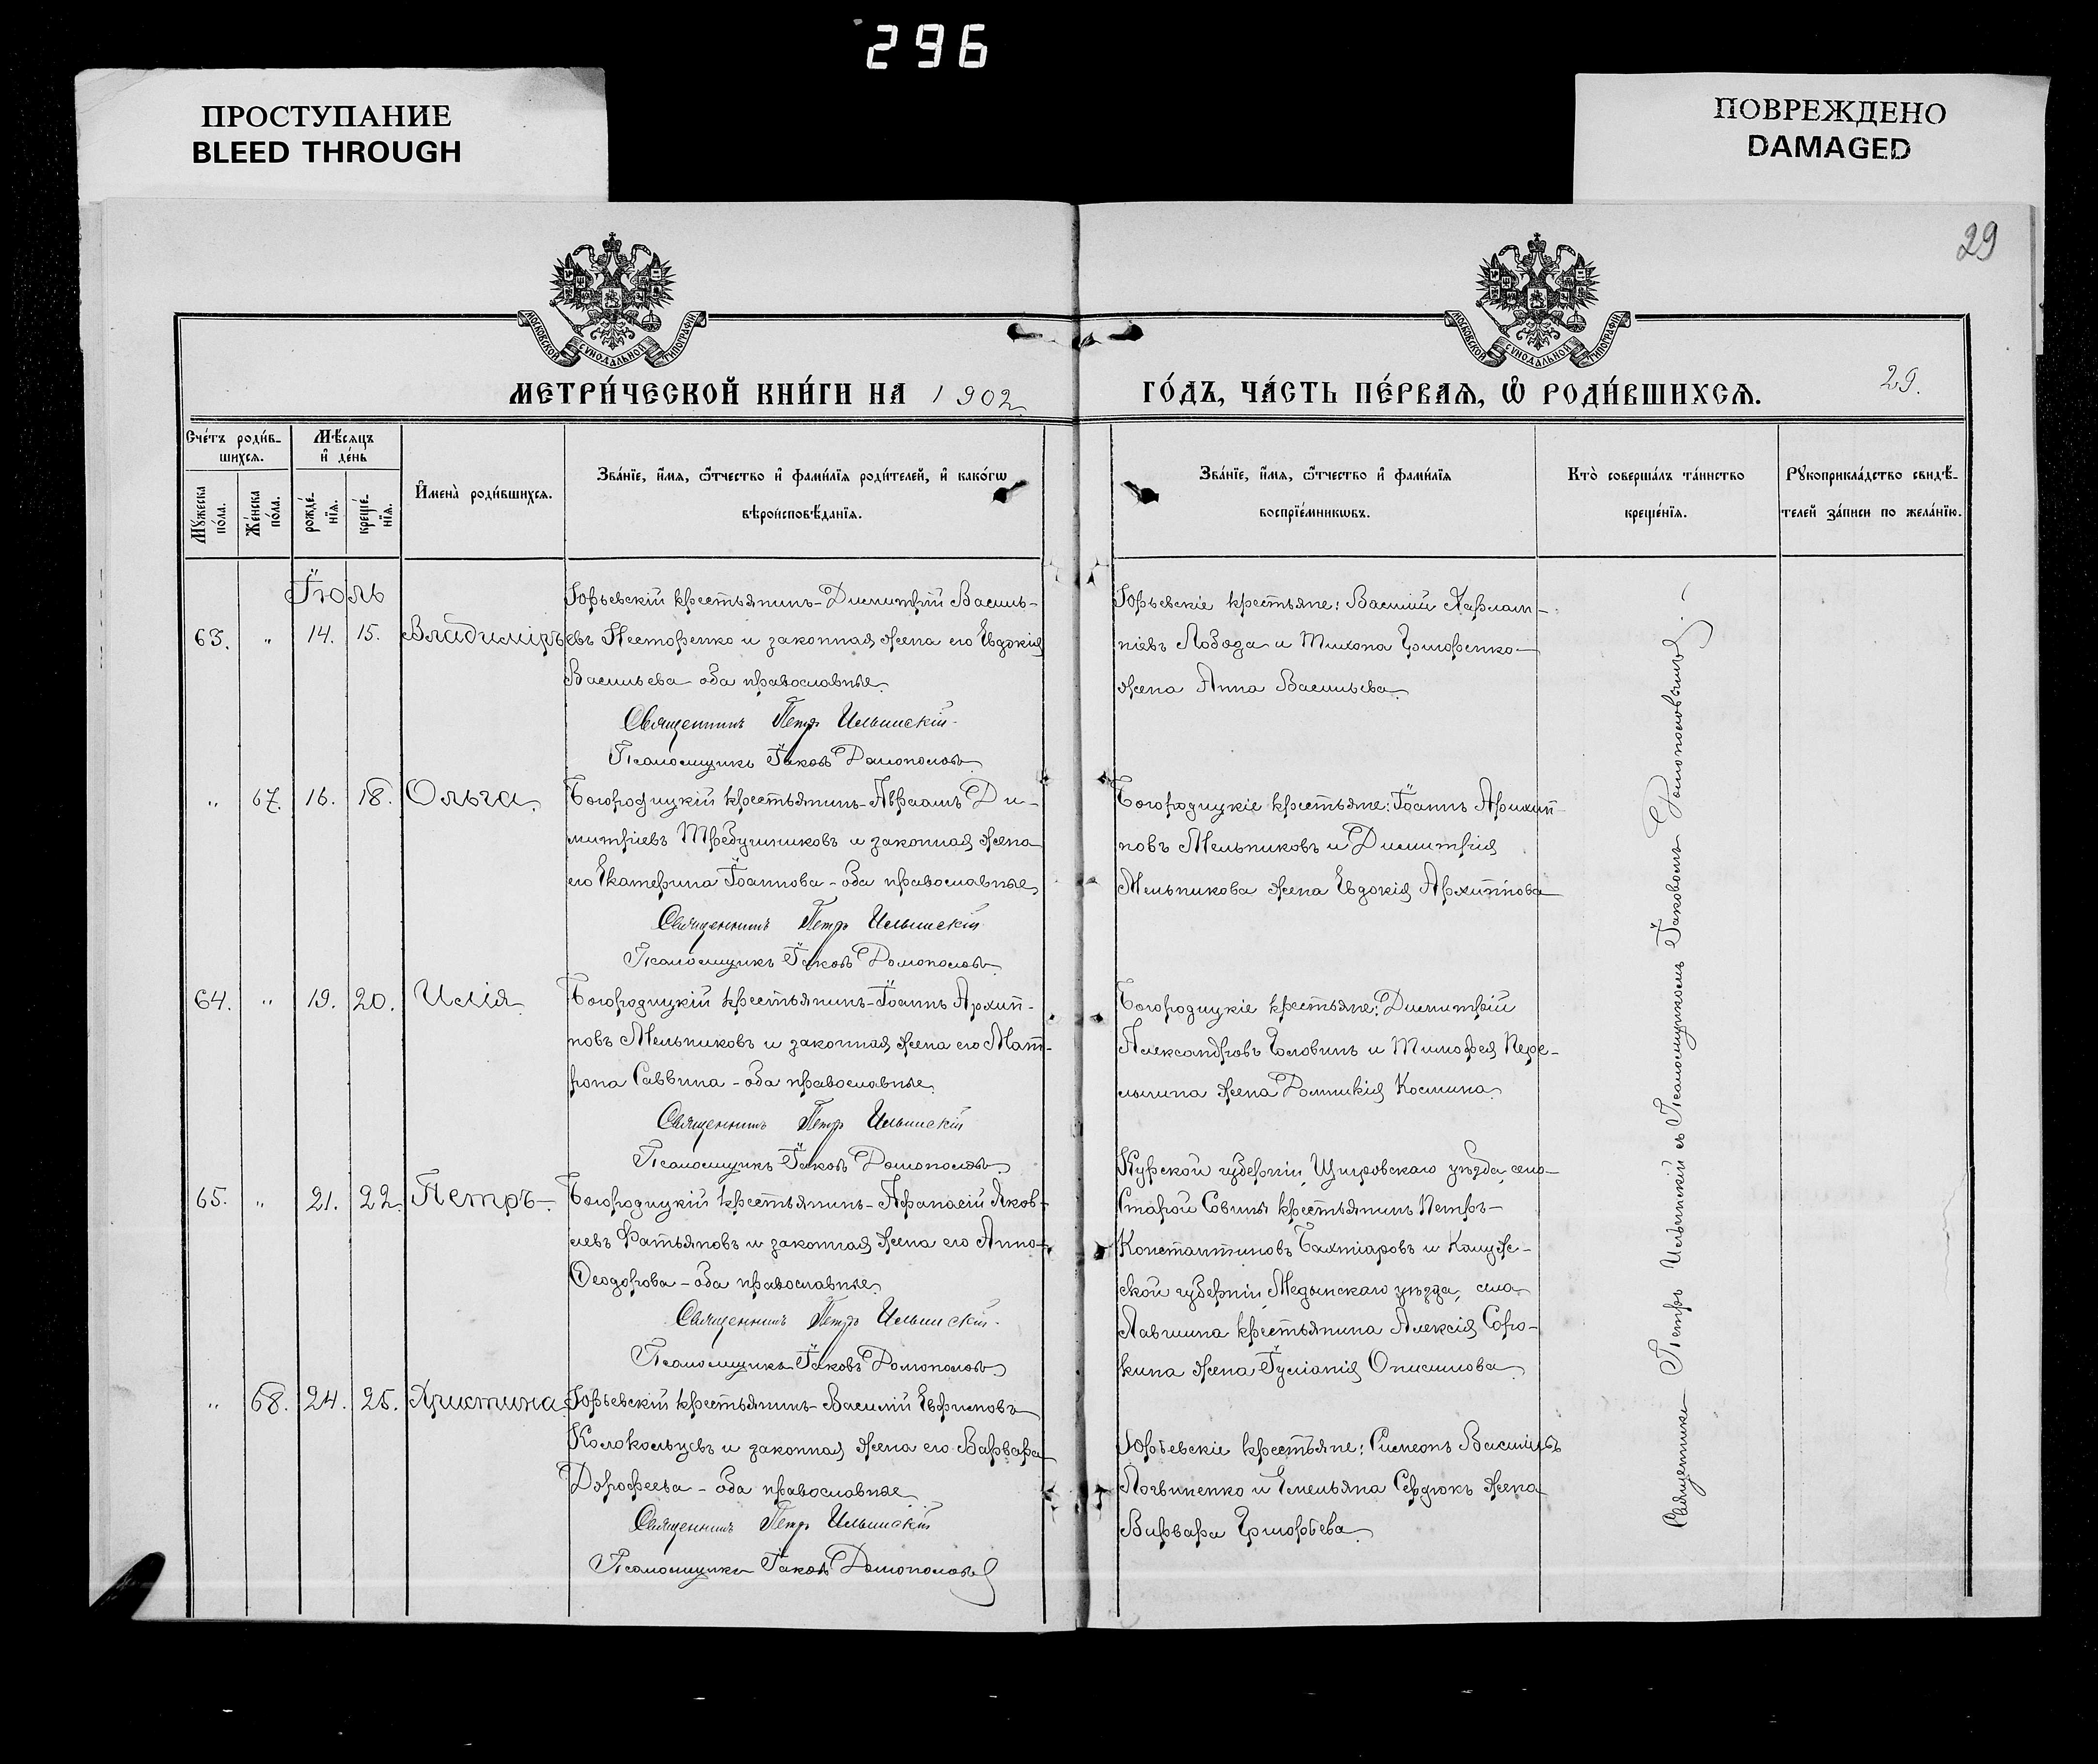 296
ПРОСТУПАНИЕ
BLEED THROUGH
ПОВРЕЖДЕНО
DAMAGED
29
МОСКОВСКОЙ СѴНОДАЛЬНОЙ ТИПОГРАФІИ
МОСКОВСКОЙ СѴНОДАЛЬНОЙ ТИПОГРАФІИ
МЕТРИ́ЧЕСКОЙ КНИ́ГИ НА 1902
ГО́ДЪ, ЧА́СТЬ ПЕ́РВАѦ, Ѽ РОДИ́ВШИХСѦ.
29.
Сче́тъ роди́в-
шихсѧ.
Мѣ́сѧцъ
и҆ де́нь
Мꙋ́жеска
по́ла.
Же́нска
по́ла.
рожде́-
нїѧ.
креще́-
нїѧ.
И҆мена̀ роди́вшихсѧ.
Зва́нїе, и҆́мѧ, ѻ҆́тчество и҆ фами́лїѧ роди́телей, и҆ како́гѡ
вѣроисповѣ́данїѧ.
Зва́нїе, и҆́мѧ, ѻ҆́тчество и҆ фами́лїѧ
воспрїе́мникѡвъ.
Кто̀ соверша́лъ та́инство
креще́нїѧ.
Рꙋкоприкла́дство свидѣ́-
телей за́писи по жела́нїю.
Іюль
63. " 14. 15. Владиміръ
Юрьевскій крестьянинъ Димитрій Василь-
евъ Нестеренко и законная жена его Евдокія
Васильева оба православные.
Священникъ Петръ Ильинскій
Псаломщикъ Іаковъ Домополовъ
Юрьевскіе крестьяне: Василій Харлам-
піевъ Лобода и Тихона Григоренко
жена Анна Васильева
" 67. 16. 18. Ольга
Богородицкій крестьянинъ Авраамъ Ди-
митріевъ Требушниковъ и законная жена
его Екатерина Іоаннова - оба православные
Священникъ Петръ Ильинскій
Псаломщикъ Іаковъ Домополовъ
Богородицкіе крестьяне: Іоаннъ Архип-
повъ Мельниковъ и Димитрія
Мельникова жена Евдокія Архиппова
64. " 19. 20. Илія
Богородицкій крестьянинъ Іоаннъ Архип-
повъ Мельниковъ и законная жена его Мат-
рона Саввина - оба православные.
Священникъ Петръ Ильинскій
Псаломщикъ Іаковъ Домополовъ
Богородицкіе крестьяне: Димитрій
Александровъ Головинъ и Тимофея
жена Домникія Космина
65. " 21. 22. Петръ
Богородицкій крестьянинъ Афанасій Яков-
левъ Фатьяновъ и законная жена его Анна
Ѳеодорова - оба православные
Священникъ Петръ Ильинскій
Псаломщикъ Іаковъ Домополовъ
Курской губерніи, Щигровскаго уѣзда, села
Старой Савины крестьянинъ Петръ
Константиновъ Бахтіаровъ и Калуж-
ской губерніи Медынскаго уѣзда, села
крестьянина Алексія Соро-
кина жена Іуліанія Онисимова
" 68. 24. 25. Христина
Юрьевскій крестьянинъ Василій
Колокольцевъ и законная жена его Варвара
Дорофеева - оба православные
Священникъ Петръ Ильинскій
Псаломщикъ Іаковъ Домополовъ
Юрьевскіе крестьяне: Симеонъ Васильевъ
Логвиненко и Емельяна Сердюкъ жена
Варвара Григорьева
Священникъ Петръ Ильинскій съ Псаломщикомъ Іаковомъ Домополовымъ.